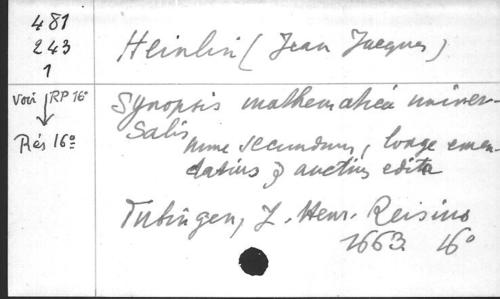 481
243
1
Voir RP 16°
Rés 16°
Heinlin (Jean Jacques)
Synopsis mathematica univer-
salis
nunc secundum, longe emen-
datius & auctius edita
Tubingen, J. Henr. Reisius
1663. 16°